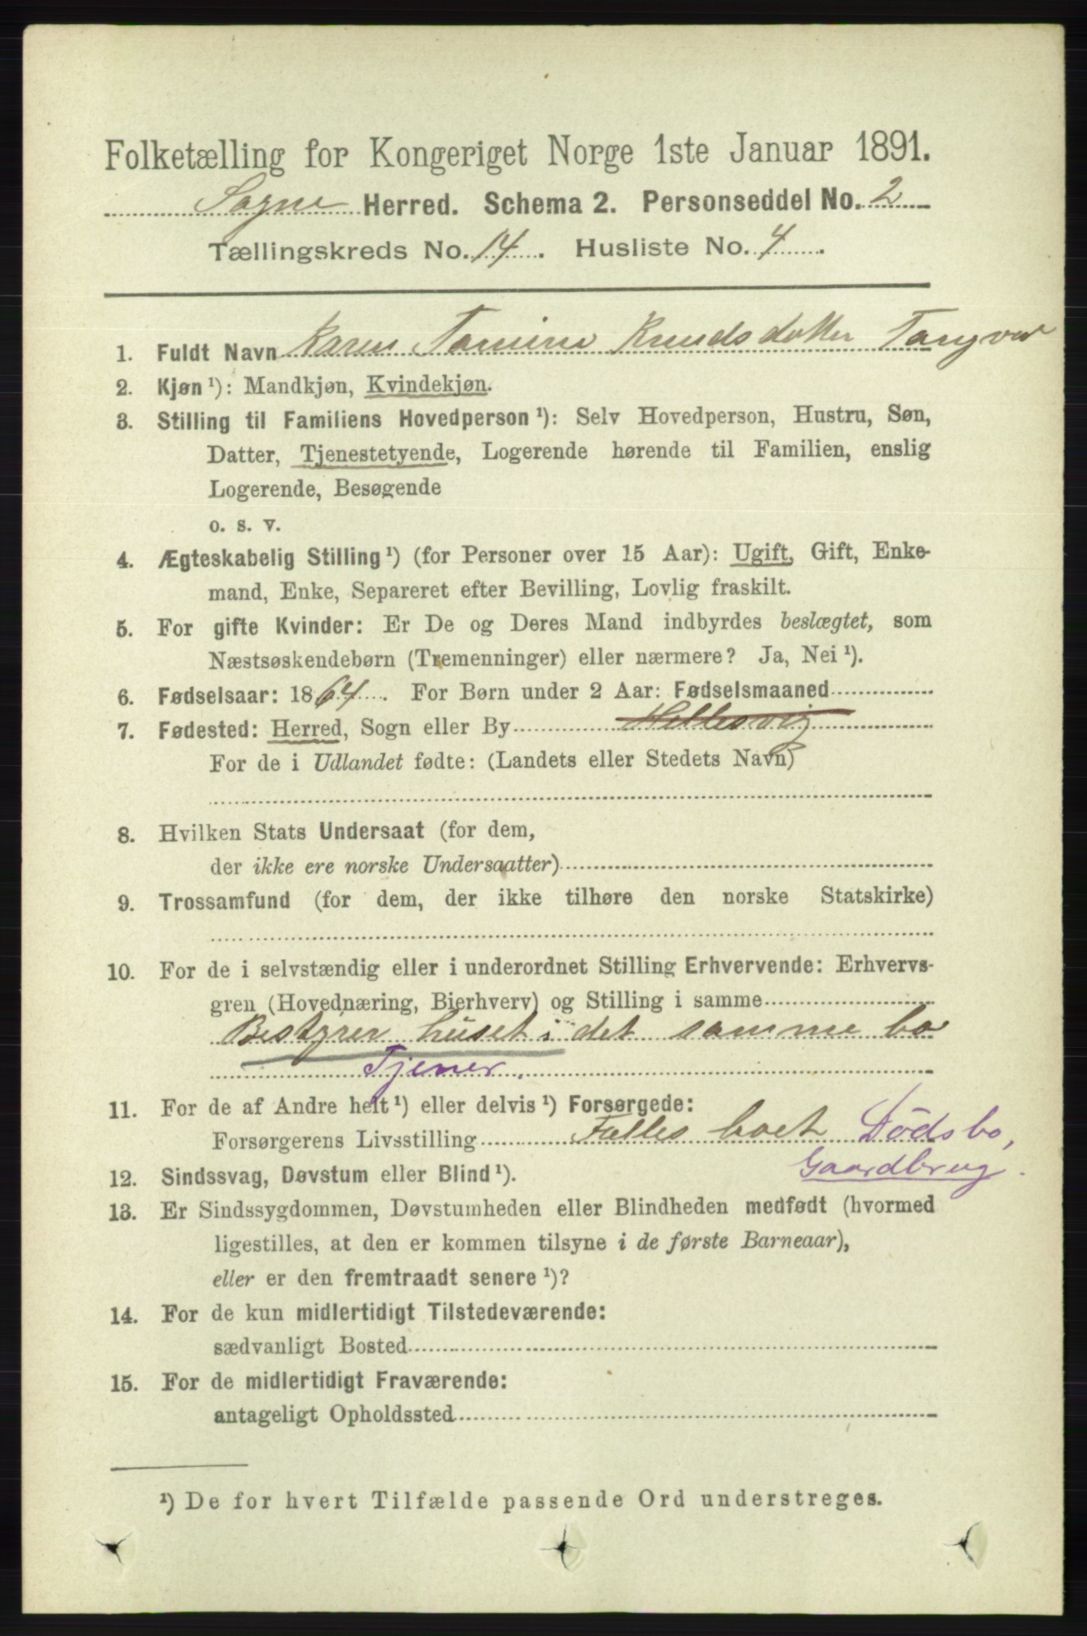 Folketælling for Kongeriget Norge 1ste Januar 1891.
Søgne Herred. Schema 2. Personseddel No. 2
Tællingskreds No. 14. Husliste No. 4.
1. Fuldt Navn Karen Tomine Knudsdatter Tangvad
2. Kjøn ¹): Mandkjøn, Kvindekjøn.
3. Stilling til Familiens Hovedperson ¹): Selv Hovedperson, Hustru, Søn,
Datter, Tjenestetyende, Logerende hørende til Familien, enslig
Logerende, Besøgende
o. s. v.
4. Ægteskabelig Stilling ¹) (for Personer over 15 Aar): Ugift, Gift, Enke-
mand, Enke, Separeret efter Bevilling, Lovlig fraskilt.
5. For gifte Kvinder: Er De og Deres Mand indbyrdes beslægtet, som
Næstsøskendebørn (Tremenninger) eller nærmere? Ja, Nei ¹).
6. Fødselsaar: 1864. For Børn under 2 Aar: Fødselsmaaned
7. Fødested: Herred, Sogn eller By Hellesvig
For de i Udlandet fødte: (Landets eller Stedets Navn)
8. Hvilken Stats Undersaat (for dem,
der ikke ere norske Undersaatter)
9. Trossamfund (for dem, der ikke tilhøre den norske Statskirke)
10. For de i selvstændig eller i underordnet Stilling Erhvervende: Erhvervs-
gren (Hovednæring, Bierhverv) og Stilling i samme
Bestyrer huset i det samme bo
Tjener.
11. For de af Andre helt ¹) eller delvis ¹) Forsørgede:
Forsørgerens Livsstilling Falles boet Dødsbo,
Gaardbrug.
12. Sindssvag, Døvstum eller Blind ¹).
13. Er Sindssygdommen, Døvstumheden eller Blindheden medfødt (hvormed
ligestilles, at den er kommen tilsyne i de første Barneaar),
eller er den fremtraadt senere ¹)?
14. For de kun midlertidigt Tilstedeværende:
sædvanligt Bosted
15. For de midlertidigt Fraværende:
antageligt Opholdssted
¹) De for hvert Tilfælde passende Ord understreges.